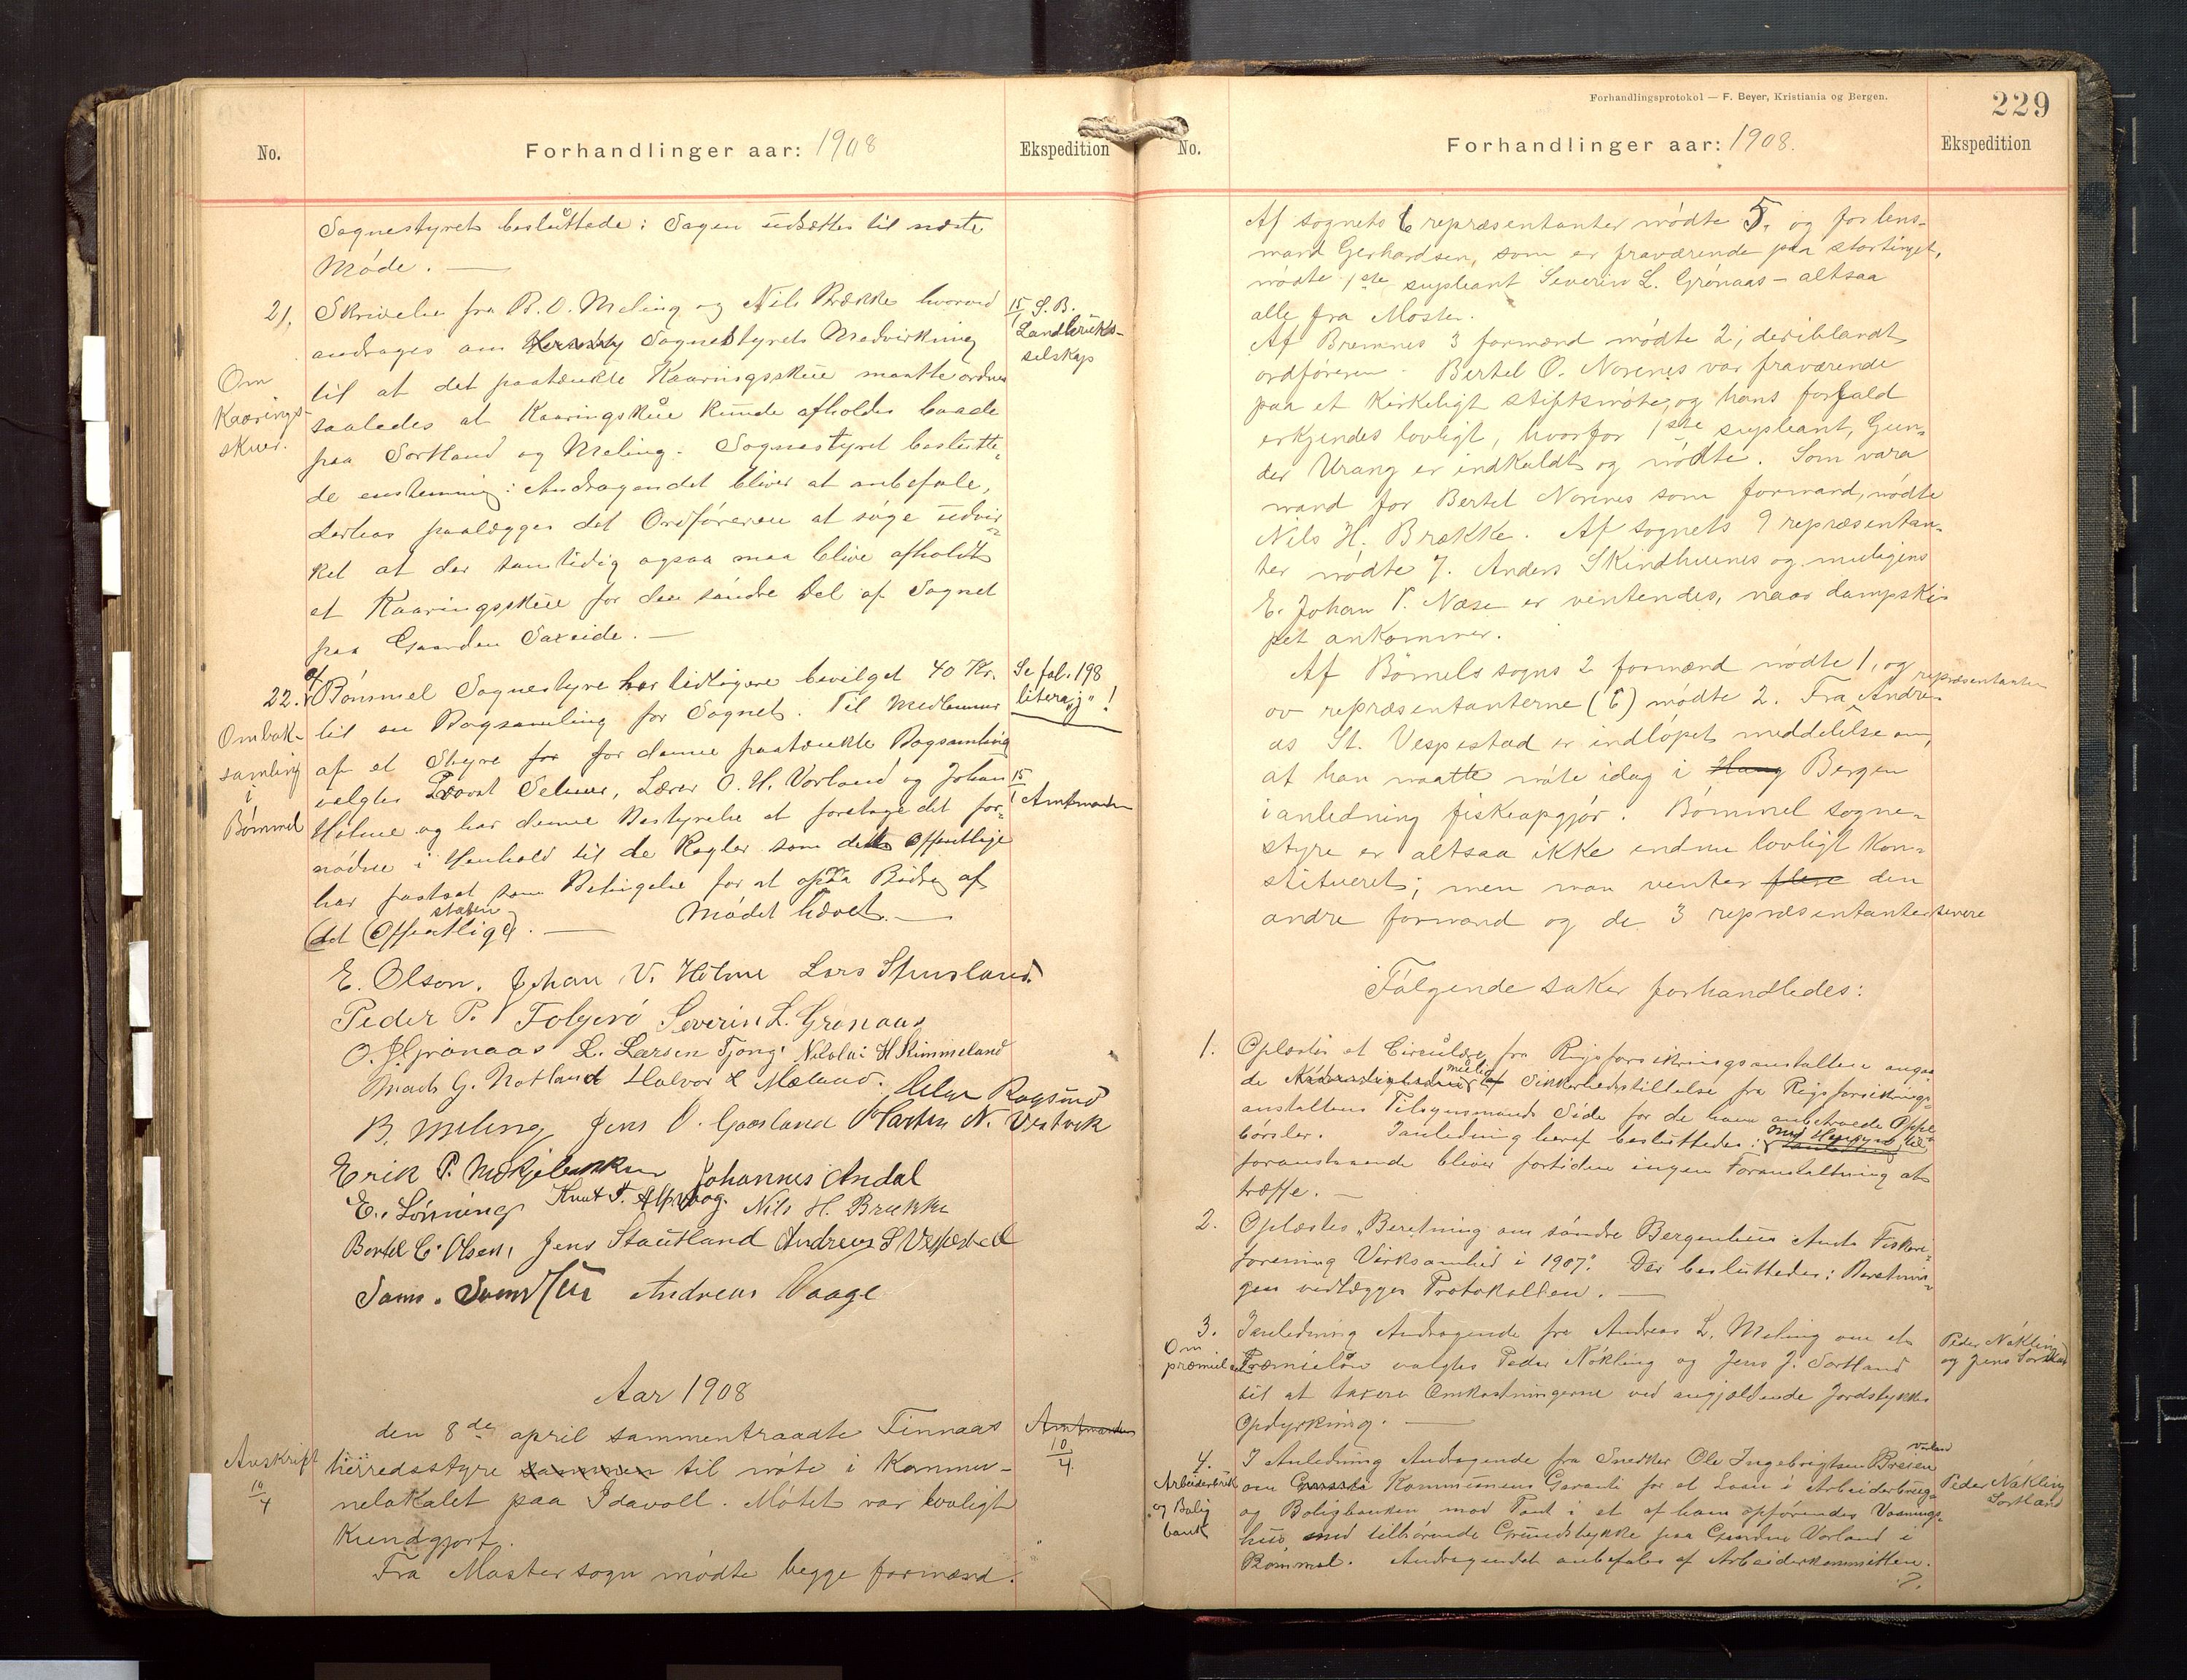 No.
Forhandlinger aar: 1908
Ekspedition
Sognestyret besluttede: Sagen udsættes til næste
Møde. —
21.
Om
Kaarings-
skuer.
Skrivelse fra B. O. Meling og Nils Brække hvorved
andrages om Sognestyrets Medvirkning
til at det paatænkte Kaaringsskue maatte ordnes
saaledes at Kaaringskue kunde afholdes baade
paa Sortland og Meling. Sognestyret beslutte-
de enstemmig: Andragendet bliver at anbefale,
derhos paalægges det Ordføreren at søge udvir-
ket at der samtidig ogsaa maa blive afholdt
et Kaaringsskue for den søndre Del af Sognet
paa Gaarden Saxeide. —
15/1 S. B.
Landbruks-
selskap
22.
Om bok-
samling
i
Bømmel
af Bømmel Sognestyre har tidligere bevilget 40 Kr.
til en Bogsamling for Sognet. Til Medlemmer
af et Styre for for denne paatænkte Bogsamling
valgtes Provst Selmer, Lærer O. H. Vorland og Johan
Holme og har denne Bestyrelse at foretage det for-
nødne i Henhold til de Regler som dette Offentlige
har fastsat som Betingelse for at opnaa Bidrag af
staten
(det Offentlige). — Mødet hævet. —
Se fol. 198
litera „j“!
15/1 Amtmanden
E. Olson. Johan V. Holme Lars Stursland
Peder P. Folgerø Severin L. Grønaas
O. J. Grønaas L. Larsen Tjong. Nikolai H Rimmeland
Mads G. Notland Halvor L Mæland. Helge Rogsund
B. Meling Jens O. Gaasland Martin N. Vestvik
Erik P. Mokjelbakken Johannes Andal
E. Lønning Knut T. Alfsvaag. Nils H. Brække
Bertel C. Olsen, Jens Stautland Andreas S Vespestad
Andreas Vaage
Aar 1908
den 8de april sammentraadte Finnaas
herredsstyre sammen til møte i Kommu-
nelokalet paa Idavoll. Møtet var lovligt
kundgjort.
Fra Moster sogn mødte begge formænd.
Avskrift
10/4
Amtmanden
10/4
Forhandlingsprotokol — F. Beyer, Kristiania og Bergen.
229
No.
Forhandlinger aar: 1908.
Ekspedition
Af sognets 6 repræsentanter mødte 5, og for lens-
mand Gerhardsen, som er fraværende paa stortinget,
mødte 1ste supleant Severin L. Grønaas – altsaa
alle fra Moster.
Af Bremnes 3 formænd mødte 2, deriblandt
ordføreren. Bertel O. Norenes var fraværende
paa et kirkeligt stiftsmøte, og hans forfald
erkjendes lovligt, hvorfor 1ste supleant, Gun-
der Urang er indkaldt og mødte. Som vara
mand for Bertel Norenes som formand, mødte
Nils H. Brække. Af sognets 9 repræsentan-
ter mødte 7. Anders Skindhuenes og muligens
E. Johan P. Næse er ventendes, naar dampski-
pet ankommer.
Af Bømels sogns 2 formænd mødte 1, og
ov repræsentanterne (6) mødte 2. Fra repræsentanten Andre-
as St. Vespestad er indløpet meddelelse om,
at han maatte møte idag i Haug Bergen
i anledning fiskeopgjør. Bømmel sogne-
styre er altsaa ikke endnu lovligt kon-
stitueret; men man venter flere den
andre formand og de 3 repræsentanter senere
Følgende saker forhandledes:
1.
Oplæstes et Circulære fra Rigsforsikringsanstalten angaa-
de mulig Sikkerhedsstillelse fra Rigsforsikrings-
anstaltens Tilsynsmands Side for de ham anbetroede Oppe-
børsler. I anledning heraf besluttedes: Med Hensyn til
foranstaaende bliver fortiden ingen Foranstaltning at
træffe. —
2.
Oplæstes „Beretning om søndre Bergenhus Amts Fiskeri-
forening Virksomhed i 1907“. Der besluttedes: Beretnin-
gen vedlægges Protokollen. —
3.
Om
præmielaan
I anledning Andragende fra Andreas L. Meling om et
Præmielån valgtes Peder Nøkling og Jens J. Sortland
til at taxere Omkostningerne ved angjældende Jordstykkes
Opdyrkning. —
Peder Nøkling
og Jens Sortland
4.
Arbeiderbruk
og Bolig
bank
I Anledning Andragende fra Snedker Ole Ingebrigtsen Breien Vorland
om Kommunens Garanti for et Laan i Arbeiderbrug-
og Boligbanken mod Pant i et af ham opførendes Vaanings-
hus med tilhørende Grundstykke paa Gaarden Vorland i
Bømmel. Andragendet anbefales af Arbeiderkomiteen.
Peder Nøkling
Sortland